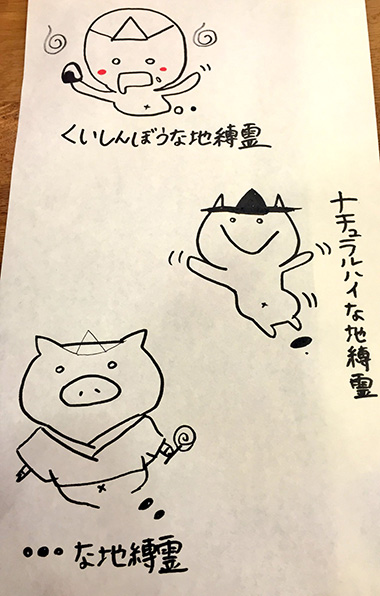 くいしんぼうな地縛霊
ナチュラルハイな地縛霊
•••な地縛霊